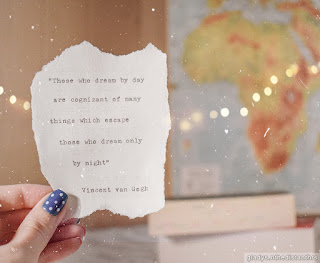 "Those who dream by day
are cognizant of many
things which escape
those who dream only
by night"
Vincent van Gogh